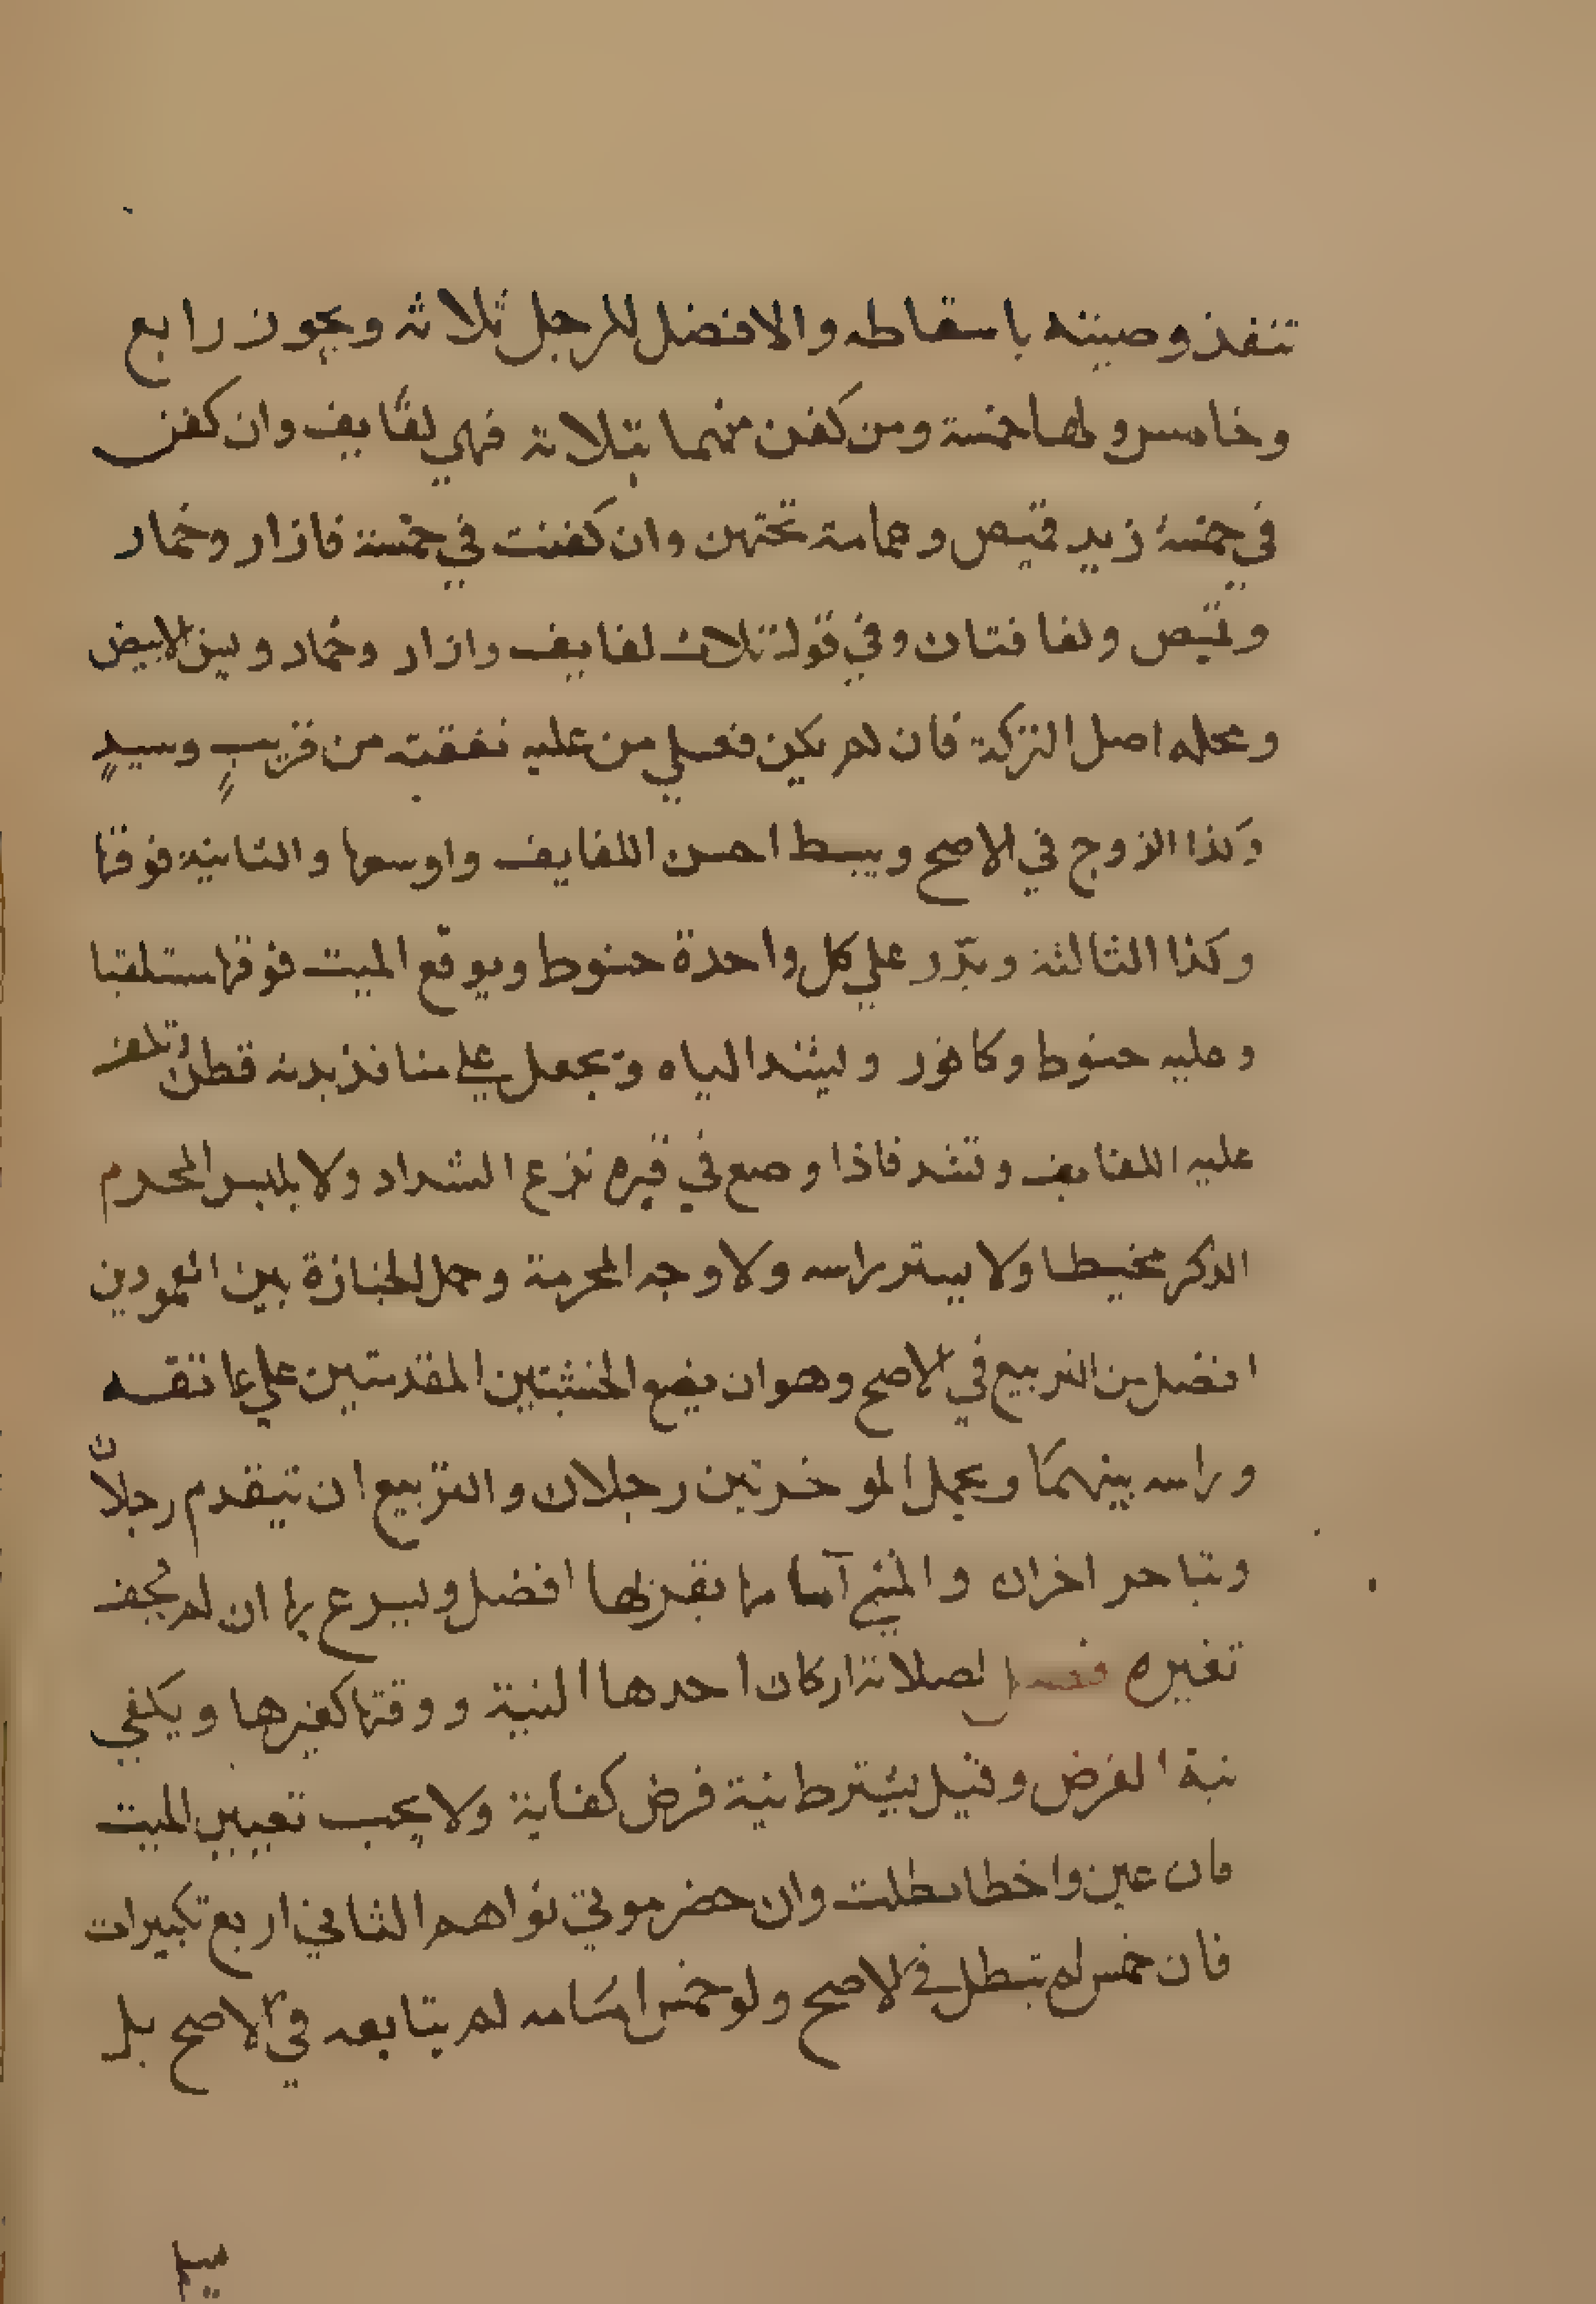 تنفذ وصيته باسقاطه والافضل للرجل ثلاثه ويجوز رابع
وخامس ولها خمسة ومن كفن منهما بثلاثة فهي لفايف وان كفن
في خمسة زيد قميص وعمامة تحتهن وان كفنت في خمسة فازار وخمار
وقميص ولفافتان وفي قول ثلاث لفايف وازار وخمار ويسن الابيض
ومحله اصل التركة فان لم يكن فعلي من عليه نفقته من قريبٍ وسيدٍ
وكذا الزوج في الاصح ويبسط احسن اللفايف واوسعها والثانية فوقها
وكذا الثالثة ويذّر علي كل واحدة حنوط ويوقع الميت فوقها مستلقيا
وعليه حنوط وكافور وليشد الياه ويجعل علي منافذ بدنه قطن وتلف
عليه اللفايف وتشد فاذا وضع في قبره نزع الشداد ولا يلبس المحرم
الذكر مخيطا ولا يستر راسه ولا وجه المحرمة وحمل الجنازة بين العمودين
افضل من التربيع في الاصح وهو ان يضع الخشبتين المقدمتين علي عاتقه
وراسه بينهما ويحمل الموخرتين رجلان والتربيع ان يتقدم رجلان
ويتاخر اخران والمشي آمامها بقربها افضل ويسرع بها ان لم يخف
تغيره فصل لصلاته اركان احدها النية ووقتها كغيرها ويكفي
نية الفرض وقيل يشترط نية فرض كفاية ولا يجب تعيين الميت
فان عين واخطا بطلت وان حضر موتي نواهم الثاني اربع تكبيرات
فان خمس لم تبطل في الاصح ولو خمس امامه لم يتابعه في الاصح بل